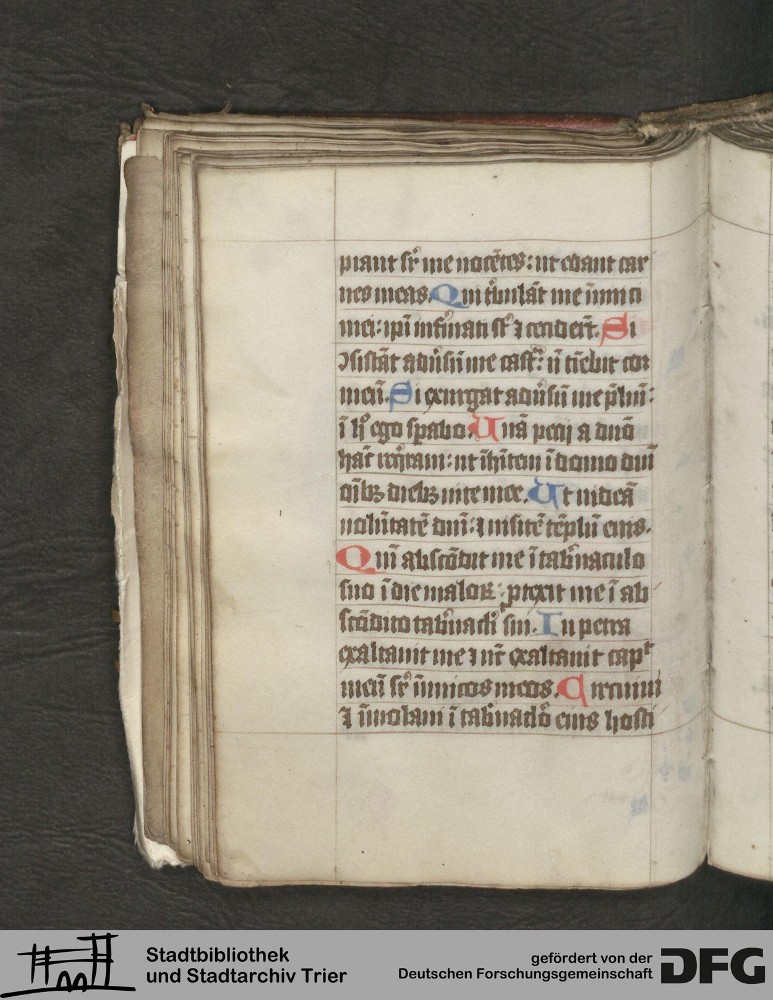 piant sr̄ me nocētes: ut edant car
nes meas. Qui t̉bulāt me inimi ci
mei: ip̄i infirmati sr̄ ⁊ cecidert̄. Si
ↄsistāt adūsū me cast̉: ñ tīebit cor
meū. Si exurgat adūsū me p̄liū:
ī h̉ ego spabo. Unā petij a dnō
hāc req̇ram: ut īhītem ī domo dnī
oībꝫ diebꝫ vite mee. Ut videā
volūtatē dnī: ⁊ visitē tēplū eius.
Qm̄ abscōdit me ī tab̉naculo
suo ī die maloꝝ: ꝓtexit me ī ab
scōdito tab̉nacli̇ sui. In petra
exaltauit me ⁊ nūc exaltauit capᵗ
meū sr̄ inimicos meos. Circuiui
⁊ īmolaui ī tab̉naclo̊ eius hosti
Stadtbibliothek
und Stadtarchiv Trier
gefördert von der
Deutschen Forschungsgemeinschaft
DFG